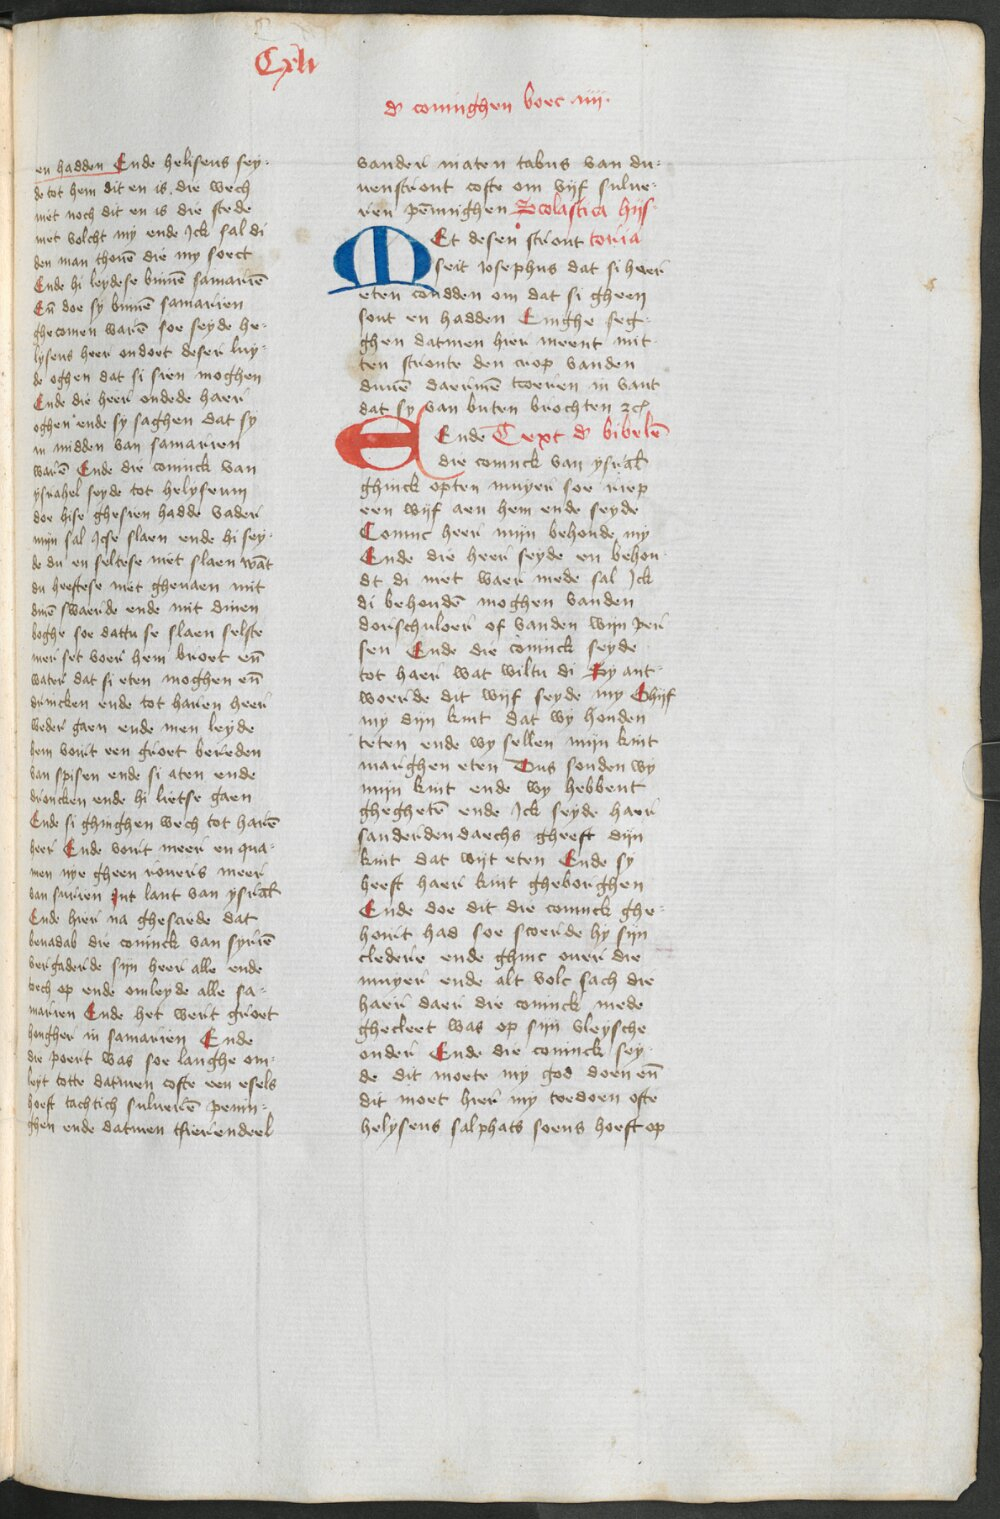 Cxli
d coninghen boec iiii.
en hadden Ende heliseus sey-
de tot hem dit en is die wech
niet noch dit en is die stede
met volcht my ende Ick sal di
den man thonē die my soect
Ende hi leydese binnē samariē
Eñ doe sy binnē samarien
ghecomen warē soe seyde he-
lyseus heer ondoet deser luy-
de oghen dat si sien moghen
Ende die heer ondede haer
oghen ende sy saghen dat sy
in midden van samarien
warē Ende die coninck van
ysrahel seyde tot helyseum
doe hise ghesien hadde vader
mijn sal Icse slaen ende hi sey-
de du en seltese niet slaen wāt
du heeftese niet ghevaen mit
dinē swaerde ende mit dinen
boghe soe dattu se slaen selste
mer set voer hem broet eñ
water dat si eten moghen eñ
drincken ende tot haren heer
weder gaen ende men leyde
hem voirt een groet bereden
van spisen ende si aten ende
droncken ende hi lietse gaen
Ende si ghinghen wech tot harē
heer Ende voirt meer en qua-
men nye gheen rovers meer
van surien Int lant van ysrał
Ende hier na ghesciede dat
benadab die coninck van syriē
vergaderde sijn heer alle ende
toech op ende omleyde alle sa-
marien Ende het wert groet
hongher in samarien Ende
die poert was soe langhe om-
leyt totte datmen cofte een esels
hoeft tachtich suluerē penin-
ghen ende datmen tfierendeel
vander maten cabus van du-
uenstront cofte om vijf sulue-
ren pēninghen Scolastica hijs-
MEt desen stront toria
seit Josephus dat si haer
eten condden om dat si gheen
sout en hadden Einghe seg-
ghen datmen hier meent mit-
ten stronte den crop vanden
duuē daermē tcoeren in vant
dat sy van buten brochten &c
EEnde Text d bibelē
die coninck van ysrał
ghinck opten muyer soe riep
een wijf aen hem ende seyde
Coninc heer mijn behoude my
Ende die heer seyde en behou-
dt di niet waer mede sal Ick
di behoudē moghen vanden
dorschvloer of vanden wijn per
sen Ende die coninck seyde
tot haer wat wiltu di Sy ant-
woerde dit wijf seyde my Ghijf
my dijn kint dat wy houden
teten ende wy sellen mijn kint
marghen eten Dus souden wy
mijn kint ende wy hebbent
ghegheten ende Ick seyde haer
sanderdendaechs gheeft dijn
kint dat wijt eten Ende sy
heeft haer kint gheborghen
Ende doe dit die coninck ghe-
hoirt had soe scoerde hy sijn
cledere ende ghinc over die
muyer ende alt volc sach die
haer daer die coninck mede
ghecleet was op sijn vleysche
onder Ende die coninck sey-
de dit moete my god doen eñ
dit moet hier my toedoen ofte
helyseus salphats soens hoeft op